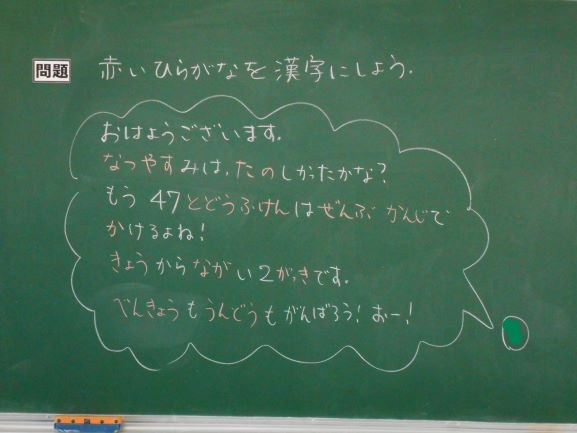 問題 赤いひらがなを漢字にしよう.
おはようございます。
なつやすみは、たのしかったかな?
もう47とどうふけんはぜんぶ かんじで
かけるよね!
きょうからながい2がっきです。
べんきょうもうんどうもがんばろう! おー!